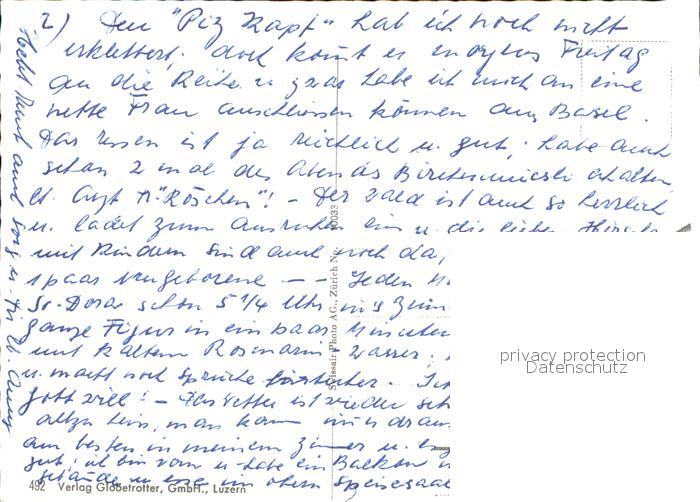 2) Den "Piz Kapf" hab ich noch nicht
erklettert, doch kommt es morgen Freitag
an die Reihe u. zwar habe ich mich an eine
nette Frau anschliessen können aus Basel.
Das Essen ist ja reichlich u. gut, habe auch
schon 2 mal des Abends Birchermüesli erhalten,
"Röschen"! - Der Wald ist auch so herrlich
u. ladet zum Ausruhen ein u. die lieben
mit Kindern sind auch noch da,
1 paar neugeborene - - Jeden
Sr. Dora schon 5 1/4 Uhr in's
ganze Figur in ein paar Minuten
mit kaltem Rosmarin-Wasser,
u. macht noch Sprüche
Gott will! - Das Wetter ist wieder
man kann
am besten in meinem Zimmer u.
gut, ich bin vorn u. habe ein Balkon
u. esse im obern Speisesaal
492 Verlag Globetrotter, GmbH., Luzern
Swissair Photo AG., Zürich Nr.
privacy protection
Datenschutz